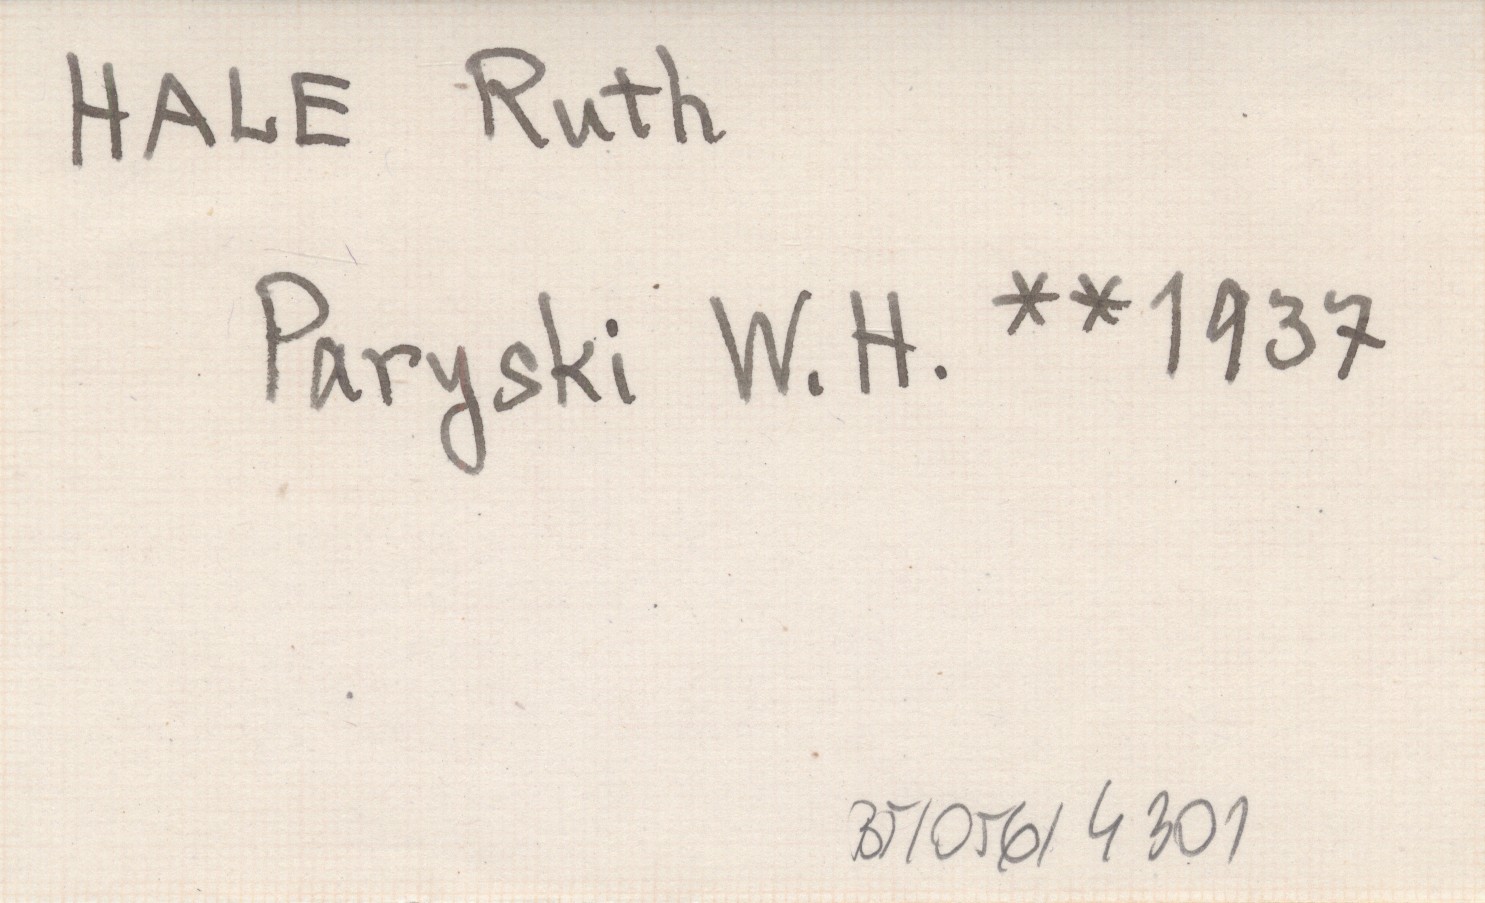 HALE Ruth
Paryski W.H. **1937
35/056/4301